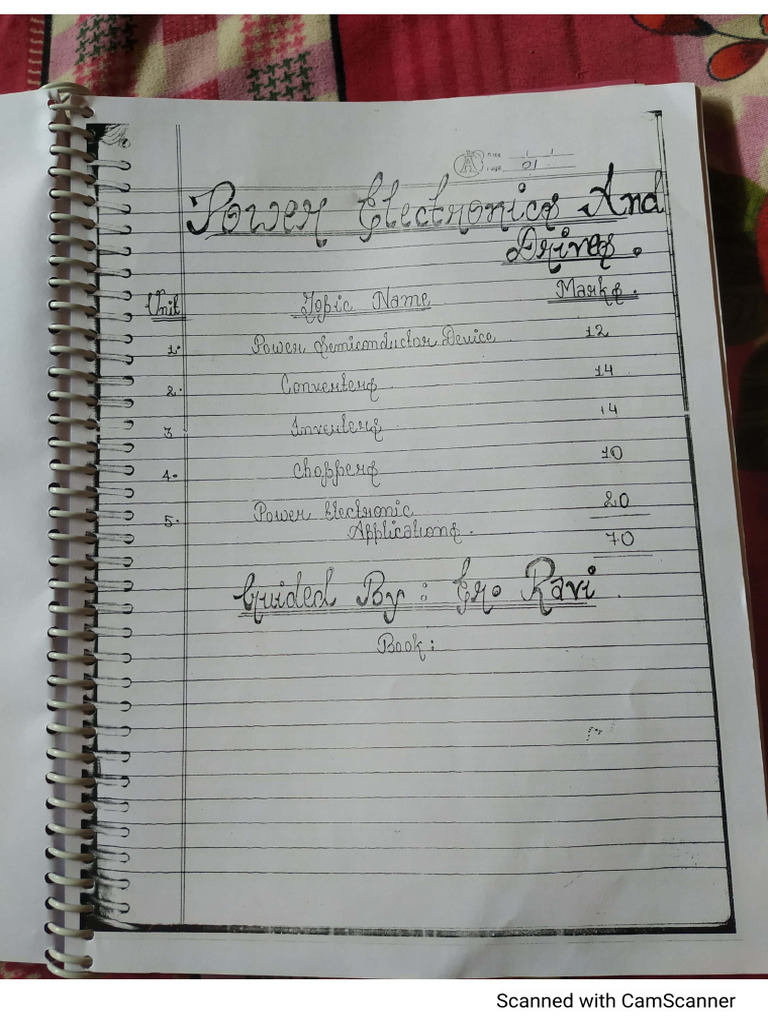 Date
Page 01
Power Electronics And
Drives.
Unit Topic Name Marks.
1. Power Semiconductor Device. 12
2. Converters. 14
3 Inverters. 14
4. Choppers 10
5. Power Electronic 20
Applications.
70
Guided By : Er. Ravi.
Book :
Scanned with CamScanner